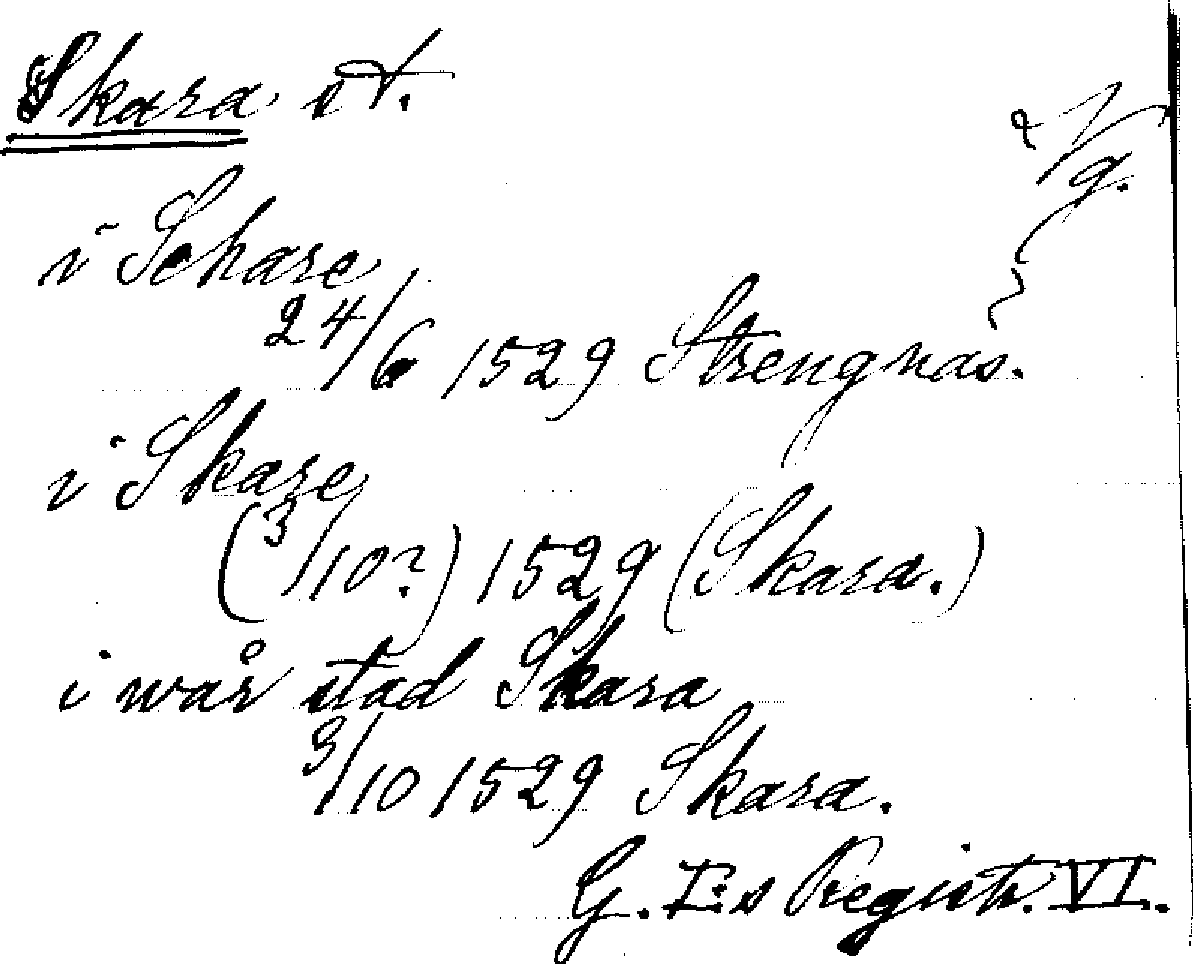 Skara st.
Vg.
i Schare
24/6 1529 Strengnäs.
i Skare
(3/10?) 1529 (Skara.)
i wår stad Skara
9/10 1529 Skara.
G. I:s Registr. VI.